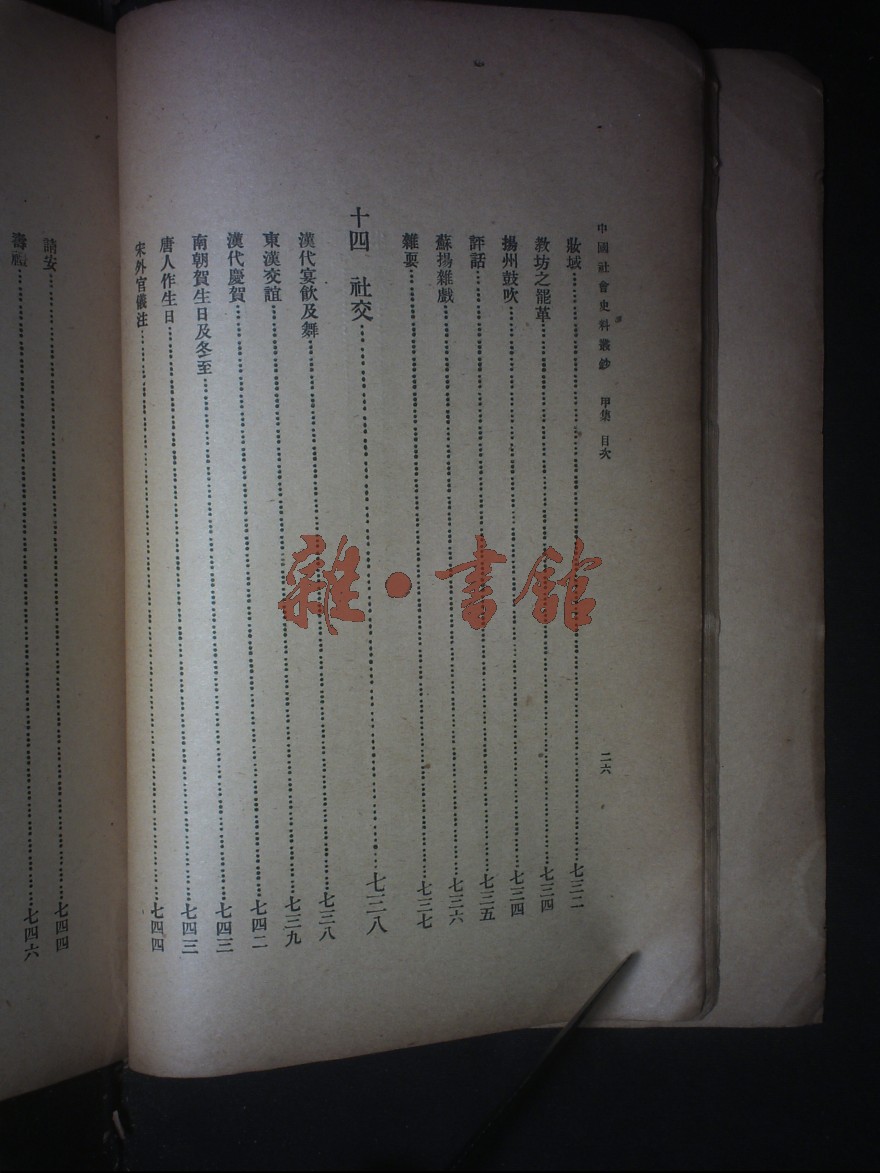 中國社會史料叢鈔 甲集 目次 二六
妝域……七三二
教坊之罷革……七三四
揚州鼓吹……七三四
評話……七三五
蘇揚雜戲……七三六
雜耍……七三七
十四 社交……七三八
漢代宴飲及舞……七三八
東漢交誼……七三九
漢代慶賀……七四二
南朝賀生日及冬至……七四三
唐人作生日……七四三
宋外官儀注……七四四
請安……七四四
壽禮……七四六
雜·書館